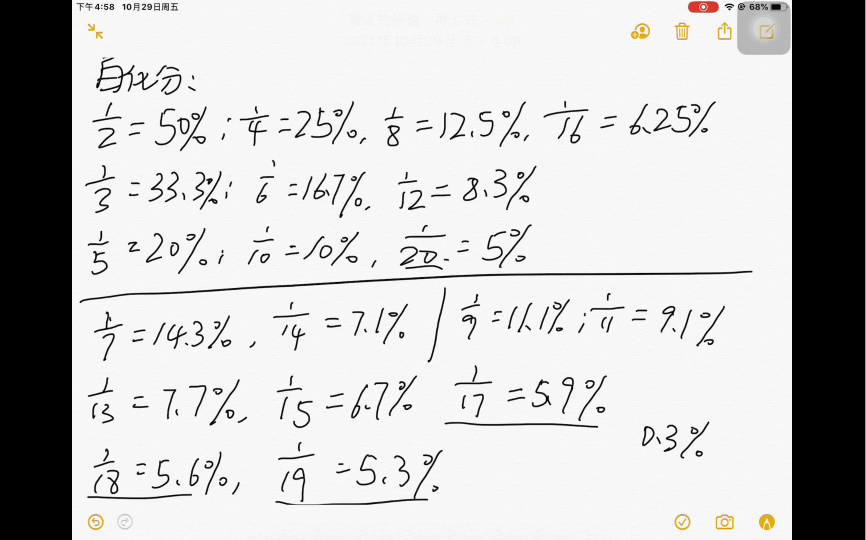 下午4:58 10月29日周五
68%
百化分:
1/2 = 50%; 1/4 = 25%, 1/8 = 12.5%, 1/16 = 6.25%
1/3 = 33.3%; 1/6 = 16.7%, 1/12 = 8.3%
1/5 = 20%; 1/10 = 10%, 1/20 = 5%
1/7 = 14.3%, 1/14 = 7.1% 1/9 = 11.1%; 1/11 = 9.1%
1/13 = 7.7%, 1/15 = 6.7% 1/17 = 5.9%
0.3%
1/18 = 5.6%, 1/19 = 5.3%